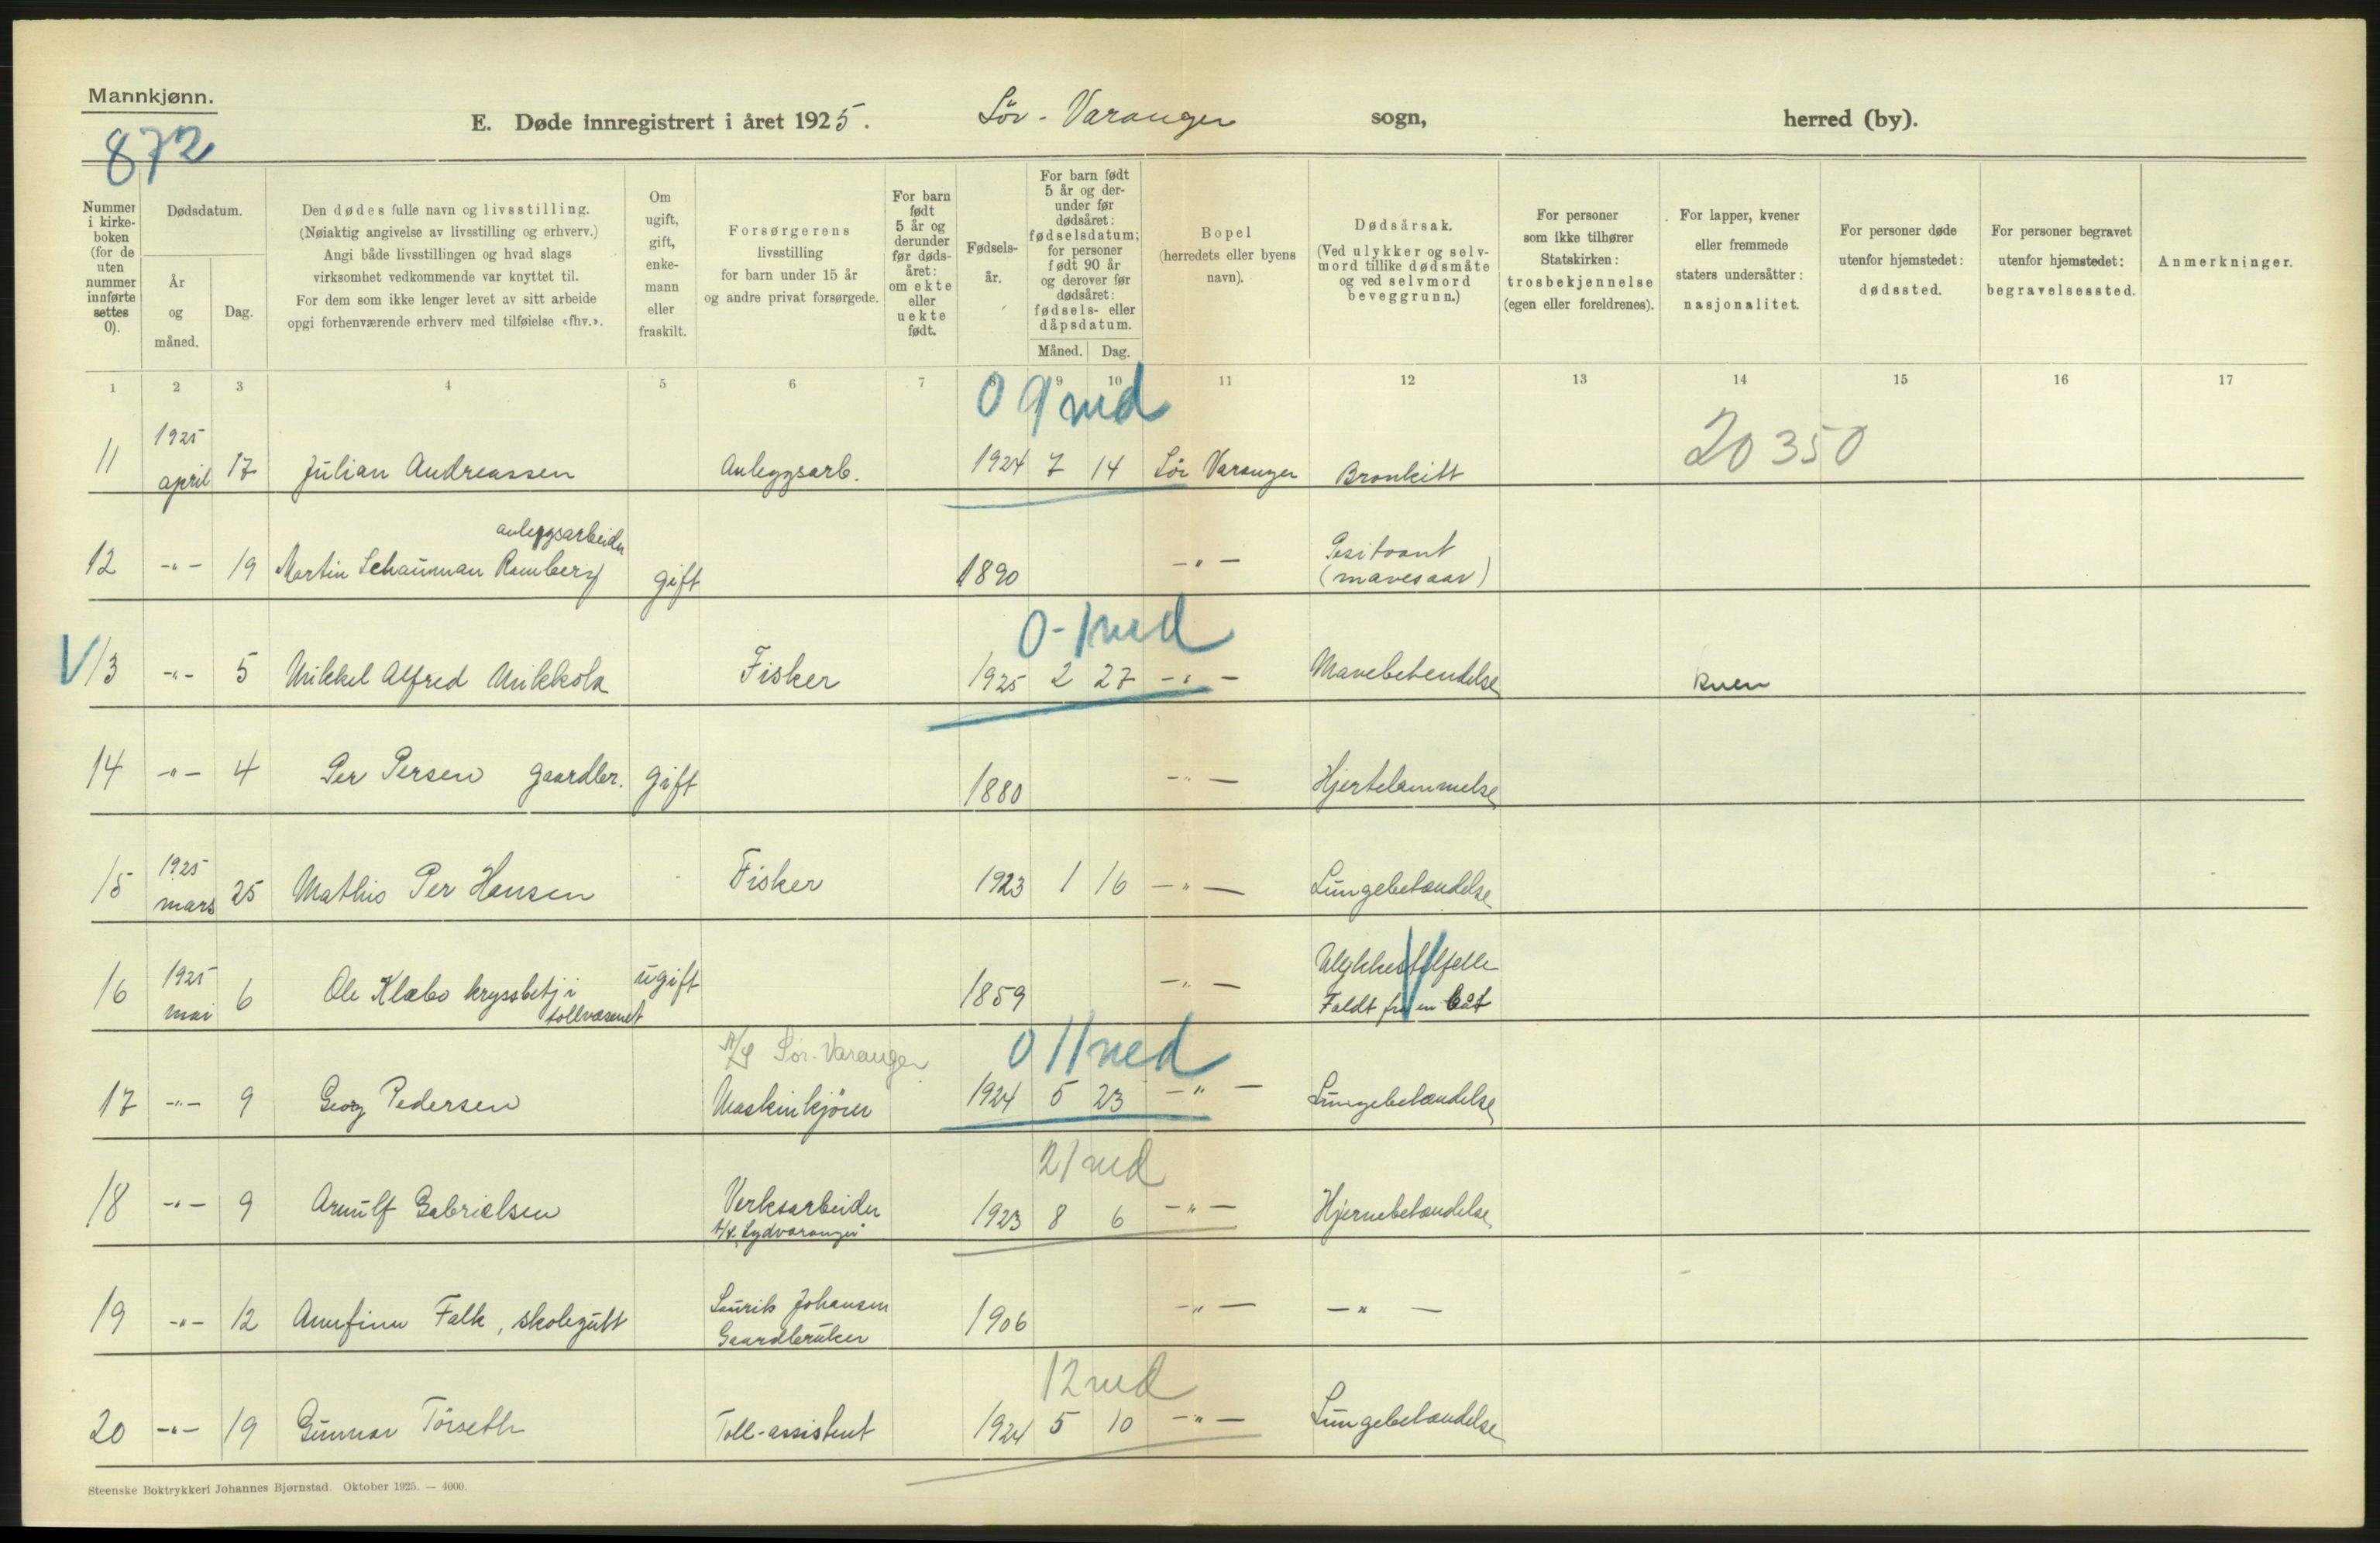 Mannkjønn.
872
E. Døde innregistrert i året 1925. Sör-Varanger sogn, herred (by).
Nummer i kirke-boken (for de uten nummer innførte settes 0).
Dødsdatum.
År og måned.
Dag.
Den dødes fulle navn og livsstilling.
(Nøiaktig angivelse av livsstilling og erhverv.)
Angi både livsstillingen og hvad slags
virksomhet vedkommende var knyttet til.
For dem som ikke lenger levet av sitt arbeide
opgi forhenværende erhverv med tilføielse «fhv.».
Om ugift, gift, enke-mann eller fraskilt.
Forsørgerens
livsstilling
for barn under 15 år
og andre privat forsørgede.
For barn født 5 år og derunder før døds-året: om ekte eller uekte født.
Fødsels-år.
For barn født 5 år og der-under før dødsåret: fødselsdatum; for personer født 90 år og derover før dødsåret: fødsels- eller dåpsdatum.
Måned. Dag.
Bopel
(herredets eller byens
navn).
Dødsårsak.
(Ved ulykker og selv-
mord tillike dødsmåte
og ved selvmord
beveggrunn.)
For personer
som ikke tilhører
Statskirken:
trosbekjennelse
(egen eller foreldrenes).
For lapper, kvener
eller fremmede
staters undersåtter:
nasjonalitet.
For personer døde
utenfor hjemstedet:
dødssted.
For personer begravet
utenfor hjemstedet:
begravelsessted.
Anmerkninger.
1 2 3 4 5 6 7 8 9 10 11 12 13 14 15 16 17
0 9 md
20350
11 1925 april 17 Julian Andreassen Anleggsarb. 1924 7 14 Sör Varanger Bronkitt
anleggsarbeider
12 -"- 19 Martin Schaunman Romberg gift 1890 -"- 
(mavesaar)
0-1 md
V 13 -"- 5 Mikkel Alfred Mikkola Fisker 1925 2 27 -"- Mavebetendelse kven
14 -"- 4 Per Persen gaardbr. gift 1880 -"- Hjertelammelse
15 1925 mars 25 Mathis Per Hansen Fisker 1923 1 16 -"- Lungebetændelse
16 1925 mai 6 Ole Klæbo kryssbetj i tollvæsenet ugift 1859 -"- Ulykkestilfelle
Faldt fra en båt
A/S Sör-Varanger
0 11 md
17 -"- 9 Georg Pedersen Maskinkjörer 1924 5 23 -"- Lungebetændelse
21 md
18 -"- 9 Arnulf Gabrielsen Verksarbeider 1923 8 6 -"- Hjernebetændelse
A/S. Sydvaranger"
19 -"- 12 Arnfinn Falk, skolegutt Laurits Johansen 1906 -"- -"-
Gaardbruker
12 md
20 -"- 19 Gunnar Törseth Toll-assistent 1924 5 10 -"- Lungebetændelse
Steenske Boktrykkeri Johannes Bjørnstad. Oktober 1925. — 4000.